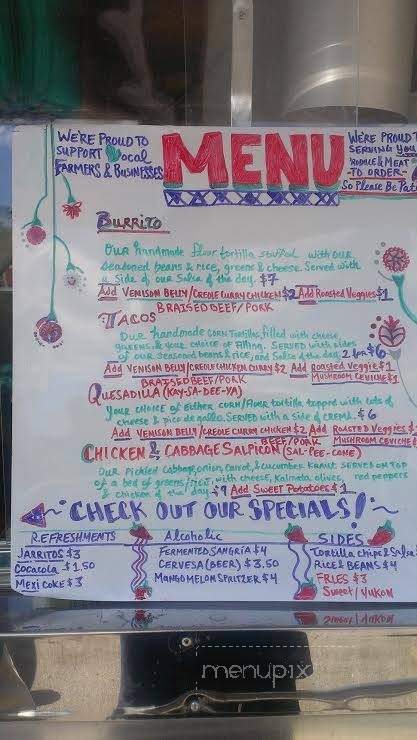 WE'RE PROUD TO
SUPPORT Local
FARMERS & BUSINESSES
MENU
WE'RE PROUD T
SERVING YOU
PRODUCE & MEAT
-TO ORDER-
So PLEASE BE Pat
BURRITO
OUR handmade flour tortilla stuffed with our
seasoned beans & rice, greens & cheese. Served with
a Side of our Salsa of the day. $7
Add VENISON BELLY/CREOLE CURRY CHICKEN $2 Add Roasted Veggies $1
BRAISED BEEF/PORK
TACOS
OUR handmade CORN Tortillas, filled with cheese,
greens, & your choice of filling. SERVED with sides
of our Seasoned beans & rice, and Salsa of the day. 2 for $6
Add VENISON BELLY/CREOLE CURRY $2 Add Roasted Veggie $1
BRAISED BEEF/PORK MUSHROOM CEVICHE $1
QUESADILLA (KAY-SA-DEE-YA)
Your CHOICE of Either CORN/Flour tortilla topped with lots of
cheese & pico de gallo. SERVED with a side of CREMA. $6
Add VENISON BELLY/CREOLE CURRY CHICKEN $2 Add ROASTED VEGGIES $
BEEF/PORK MUSHROOM CEVICHE $
CHICKEN & CABBAGE SALPICON (SAL-PEE-CONE)
OUR Pickled cabbage, onion, carrot, & cucumber KRAUT. SERVED ON TOP
of a bed of greens/rice, with cheese, Kalmata olives, red peppers
& chicken of the day $9 Add SWEET POTATOES $1
CHECK OUT OUR SPECIALS!
REFRESHMENTS Alcoholic SIDES
JARRITOS $3 FERMENTED SANGRIA $4 Tortilla chips & Salsa
Cocacola $1.50 CERVESA (BEER) $3.50 RICE & BEANS $4
Mexi COKE $3 MANGO MELON SPRITZER $4 FRIES $3
Sweet/YUKON
menupix